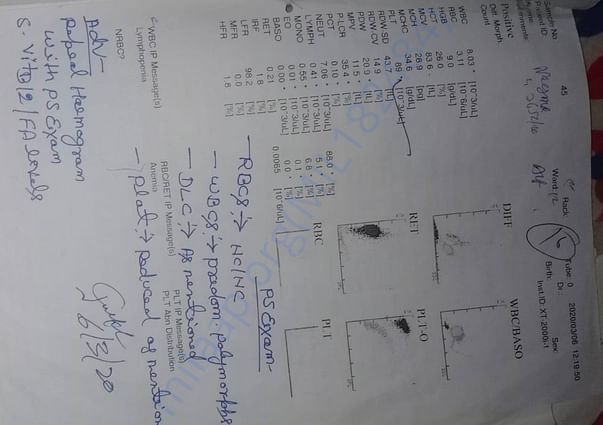 Sample No. 45
Rack: Tube: 0 2020/03/06 12:19:50
Patient ID:
Ward Dr. Birth: Sex:
Inst.ID:XT-2000i-1
Positive
Diff. Morph. Count
WBC 8.03 [10^3/uL]
RBC 3.11 [10^6/uL]
HGB 9.0 [g/dL]
HCT 26.0 [%]
MCV 83.6 [fL]
MCH 28.9 [pg]
MCHC 34.6 [g/dL]
PLT 89 [10^3/uL]
RDW-SD 43.7 [fL]
RDW-CV 14.9 [%]
PDW [fL]
MPV 11.5 [fL]
P-LCR 35.4 [%]
PCT 0.10 [%]
NEUT 7.06 [10^3/uL] 88.0 [%]
LYMPH 0.41 [10^3/uL] 5.1 [%]
MONO 0.55 [10^3/uL] 6.8 [%]
EO 0.01 [10^3/uL] 0.1 [%]
BASO 0.00 [10^3/uL] 0.0 [%]
RET 0.21 [%] 0.0065 [10^6/uL]
IRF 1.8 [%]
LFR 98.2 [%]
MFR [%]
HFR 1.8 [%]
DIFF
WBC/BASO
RET
PLT-O
RBC
PLT
PS Exam-
- RBCs:→ NC/NC
- WBCs:→ predom. polymorphs
- DLC:→ As mentioned
- Plat:→ Reduced as mention
WBC IP Message(s)
Lymphopenia
NRBC?
RBC/RET IP Message(s)
Anemia
PLT IP Message(s)
PLT Abn Distribution
Adv-
Repeat Haemogram
with PS Exam
S. Vit B12/FA levels
6/3/20